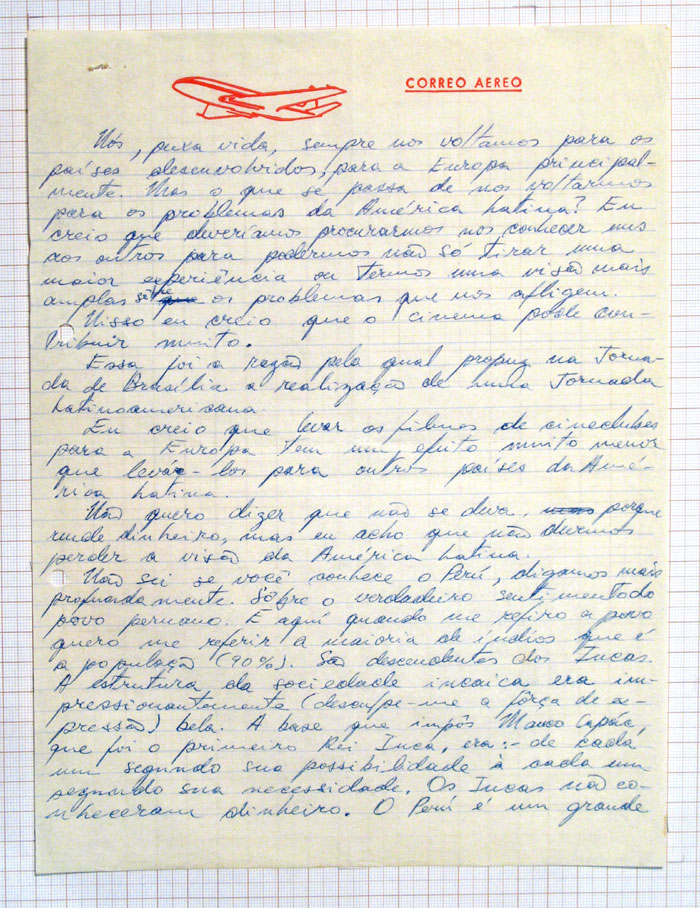 CORREO AEREO
Nós, puxa vida, sempre nos voltamos para os
países desenvolvidos, para a Europa principal-
mente. Mas o que se passa de nos voltarmos
para os problemas da América Latina? Eu
creio que deveríamos procurarmos nos conhecer uns
aos outros para podermos não só tirar uma
maior experiência ou termos uma visão mais
amplas sobre os problemas que nos afligem.
Nisso eu creio que o cinema pode con-
tribuir muito.
Essa foi a razão pela qual propuz na Jorna-
da de Brasília a realização de uma Jornada
Latinoamericana
Eu creio que levar os filmes de cineclubes
para a Europa tem um efeito muito menor
que levá-los para outros países da Amé-
rica Latina.
Não quero dizer que não se deva, porque
rende dinheiro, mas eu acho que não devemos
perder a visão da América Latina.
Não sei se você conhece o Perú, digamos mais
profundamente. Sôbre o verdadeiro sentimento do
povo peruano. E aquí quando me refiro a povo
quero me referir a maioria de índios que é
a população (90%). São descendentes dos Incas.
A estrutura da sociedade incaica era im-
pressionantemente (desculpe-me a fôrça de ex-
pressão) bela. A base que impôs Manco Capac,
que foi o primeiro Rei Inca, era:- de cada
um segundo sua possibilidade à cada um
segundo sua necessidade. Os Incas não co-
nheceram dinheiro. O Perú é um grande